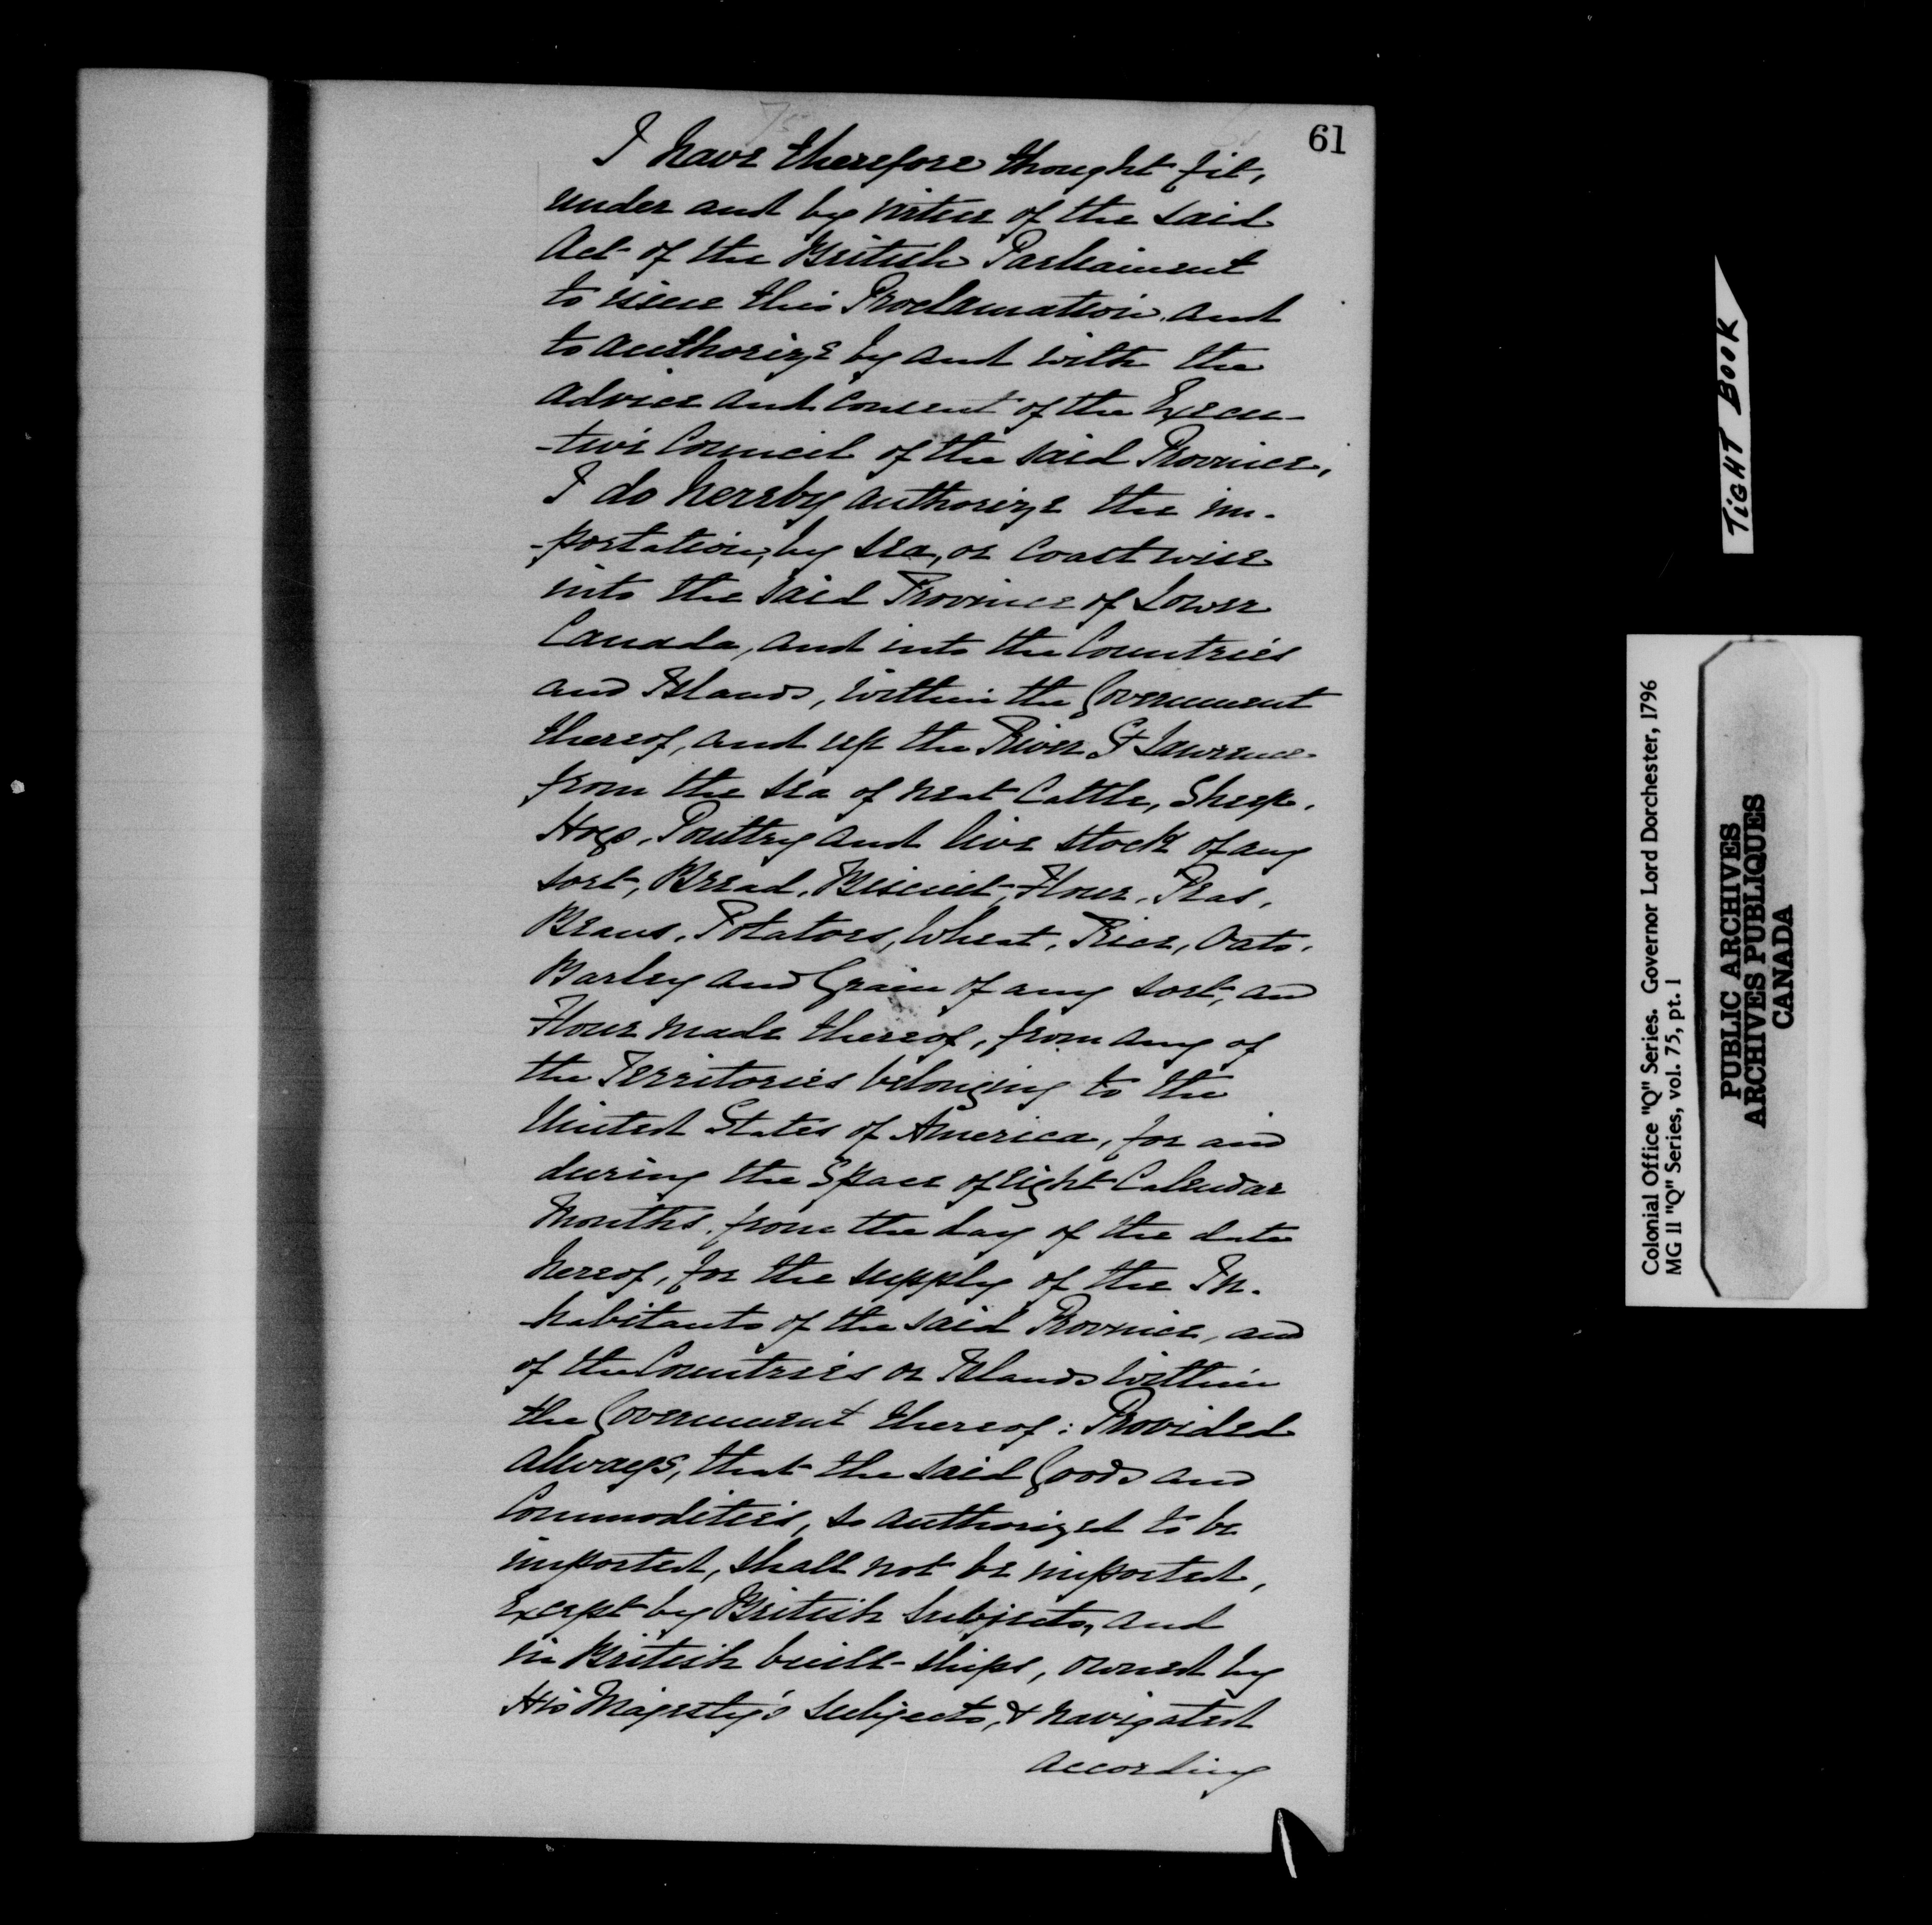 61
I have therefore thought fit,
under and by virtue of the said
Act of the British Parliament
to issue this Proclamation and
to authorize by and with the
advice and consent of the Execu-
-tive Council of the said Province,
I do hereby authorize the im-
-portation, by sea, or coastwise
into the said Province of Lower
Canada, and into the Countries
and Islands, within the Government
thereof, and up the River St Lawrence
from the sea of neat Cattle, Sheep,
Hogs, Poultry and live stock of any
sort, Bread, Biscuit, Flour, Peas,
Beans, Potatoes, Wheat, Rice, Oats,
Barley and Grain of any sort, and
Flour made thereof, from any of
the Territories belonging to the
United States of America, for and
during the Space of eight Calendar
Months, from the day of the date
hereof, for the supply of the In-
-habitants of the said Province, and
of the Countries or Islands within
the Government thereof: Provided
always, that the said Goods and
Commodities, so authorized to be
imported, shall not be imported,
except by British Subjects, and
in British built-ships, owned by
His Majesty's subjects, & navigated
according
TIGHT BOOK
Colonial Office "Q" Series. Governor Lord Dorchester, 1796
MG 11 "Q" Series, vol. 75, pt. 1
PUBLIC ARCHIVES
ARCHIVES PUBLIQUES
CANADA